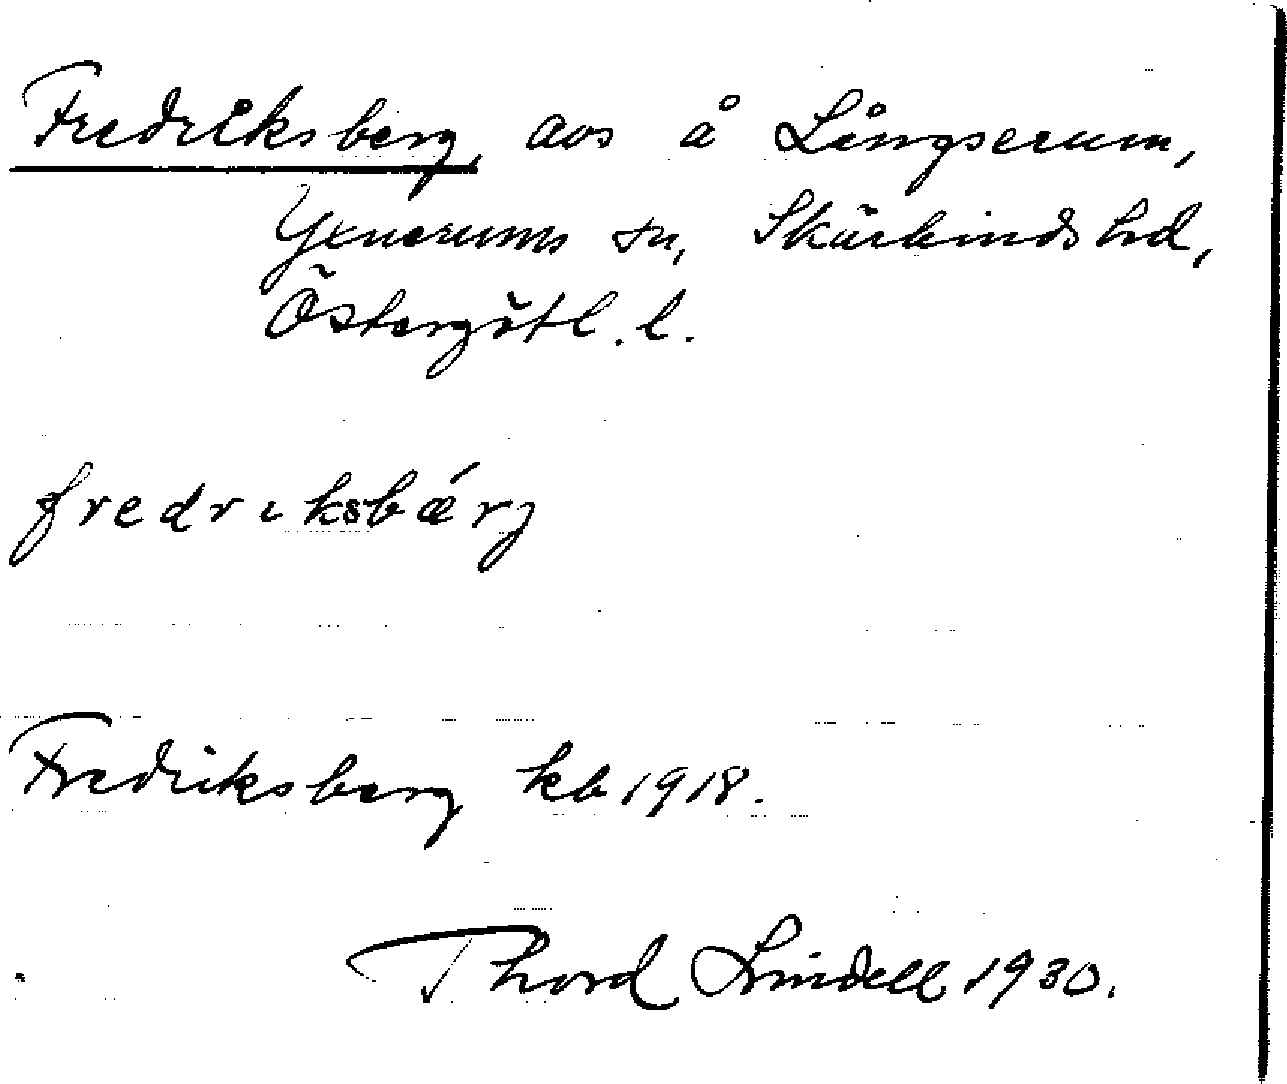 Fredriksberg, avs å Långserum,
Yxnerums sn, Skärkinds hd,
Östergötl. l.
fredriksbærj
Fredriksberg kb 1918.
Thord Lindell 1930.